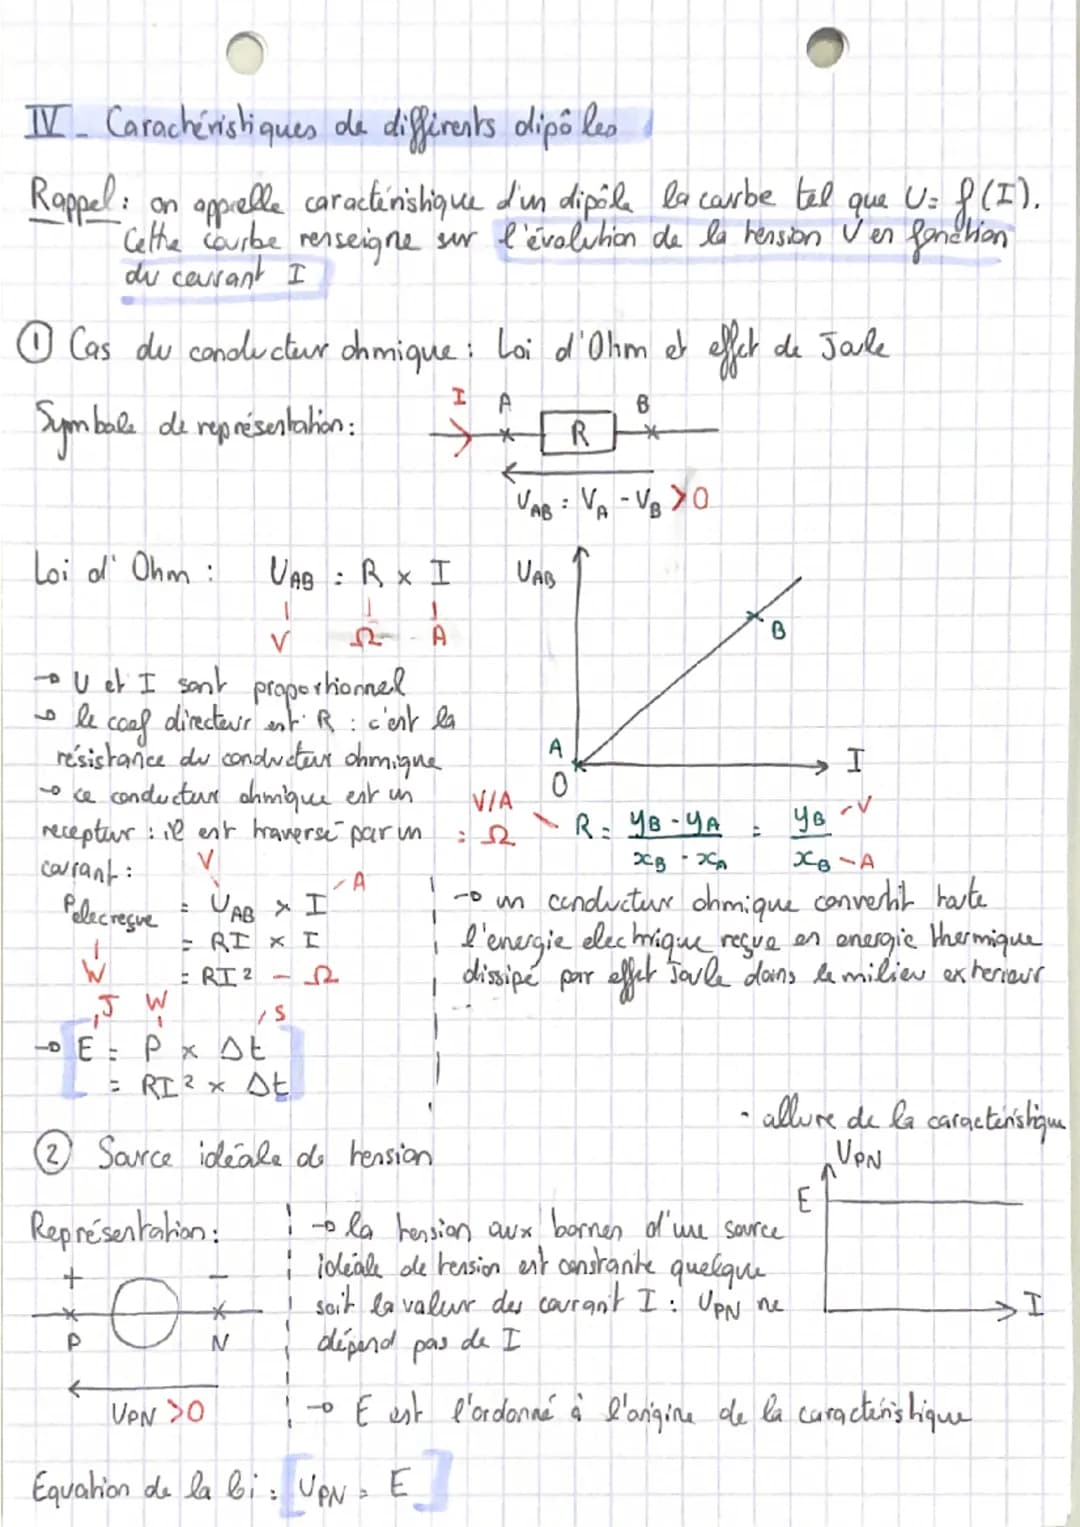 IV - Caractéristiques de différents dipôles
Rappel : on appelle caractéristique d'un dipôle la courbe tel que U = f(I).
Cette courbe renseigne sur l'évolution de la tension U en fonction
du courant I
① Cas du conducteur ohmique : Loi d'Ohm et effet de Joule
Symbole de représentation :
I A B
R
UAB = VA - VB >0
Loi d'Ohm : UAB = R × I
V Ω A
UAB
B
A
O
I
→ U et I sont proportionnel
→ le coef directeur est R : c'est la
résistance du conducteur ohmique
→ ce conducteur ohmique est un
récepteur : il est traversé par un
courant :
V/A
= Ω
R = yB - yA / xB - xA = yB / xB
V
A
V
A
Pelec reçue = UAB × I
= RI × I
= RI² - Ω
W
J W s
→ E = P × Δt
= RI² × Δt
→ un conducteur ohmique convertit toute
l'energie electrique reçue en energie thermique
dissipé par effet Joule dans le milieu exterieur
② Source idéale de tension
- allure de la caracteristique
UPN
E
I
Représentation :
+ -
P N
UPN >0
→ la tension aux bornes d'une source
idéale de tension est constante quelque
soit la valeur des courant I : UPN ne
dépend pas de I
→ E est l'ordonné à l'origine de la caractéristique
Equation de la loi : [UPN = E]